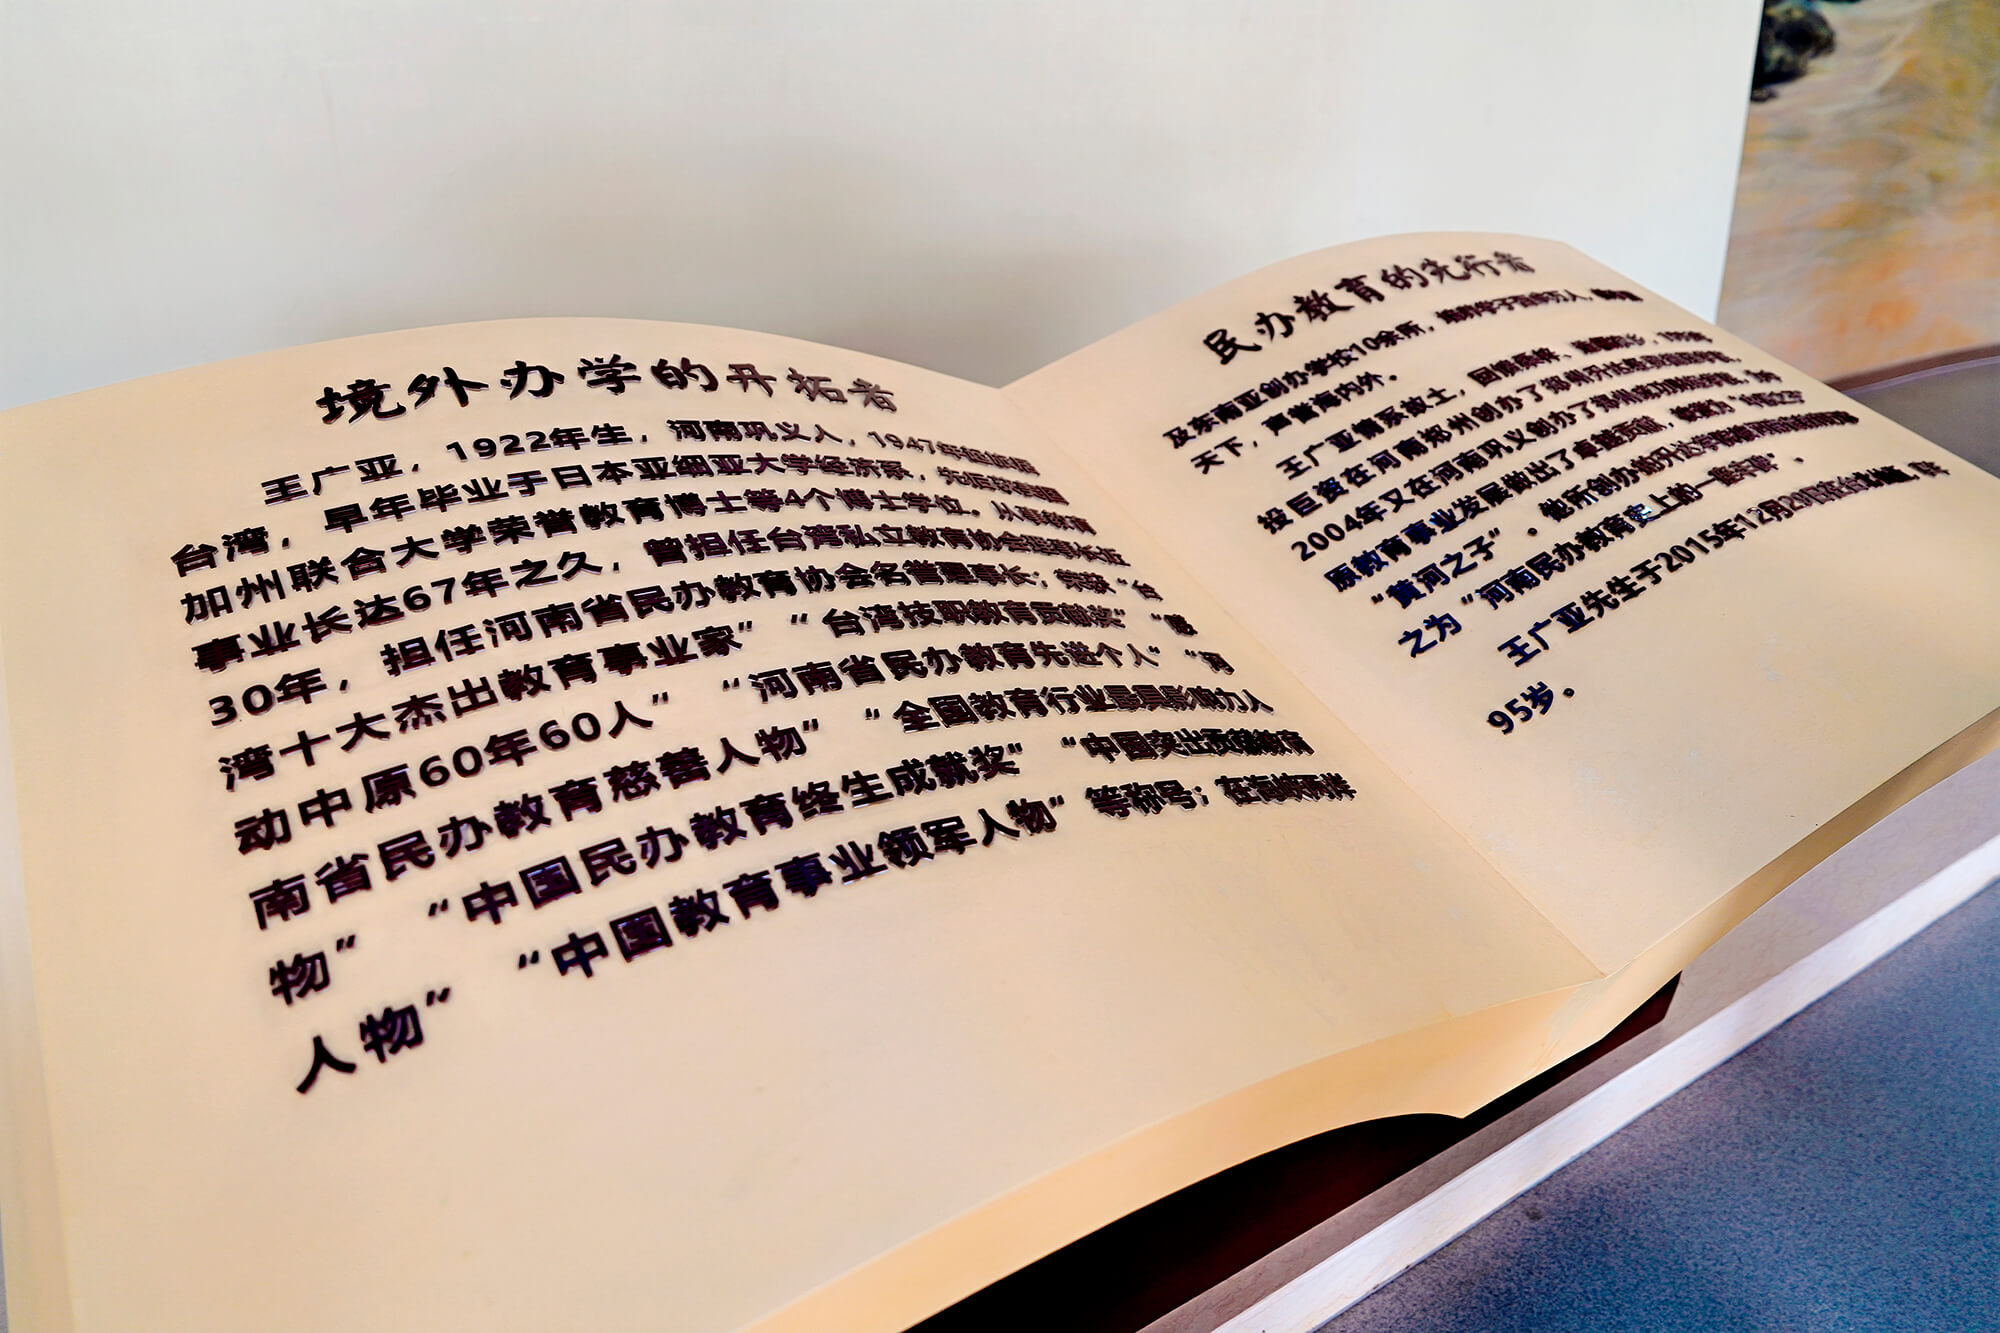 境外办学的开拓者
王广亚，1922年生，河南巩义人，1947年
台湾，早年毕业于日本亚细亚大学经济系，先后获美国
加州联合大学荣誉教育博士等4个博士学位。从事教育
事业长达67年之久，曾担任台湾私立教育协会理事长近
30年，担任河南省民办教育协会名誉理事长；荣获“台
湾十大杰出教育事业家”“台湾技职教育贡献奖”“感
动中原60年60人”“河南省民办教育先进个人”“河
南省民办教育慈善人物”“全国教育行业最具影响力人
物”“中国民办教育终生成就奖”“中国突出贡献教育
人物”“中国教育事业领军人物”等称号；在海峡两岸
民办教育的先行者
及东南亚创办学校10余所，培养学子百余万人，
天下，声誉海内外。
王广亚情系故土，回馈桑梓，
投巨资在河南郑州创办了郑州升达经贸管理学院，
2004年又在河南巩义创办了郑州成功财经学院，为中
原教育事业发展做出了卓越贡献，被誉为“中原之子”
“黄河之子”。他所创办的升达学院被
之为“河南民办教育史上的一座丰碑”。
王广亚先生于2015年12月29日在台北
95岁。